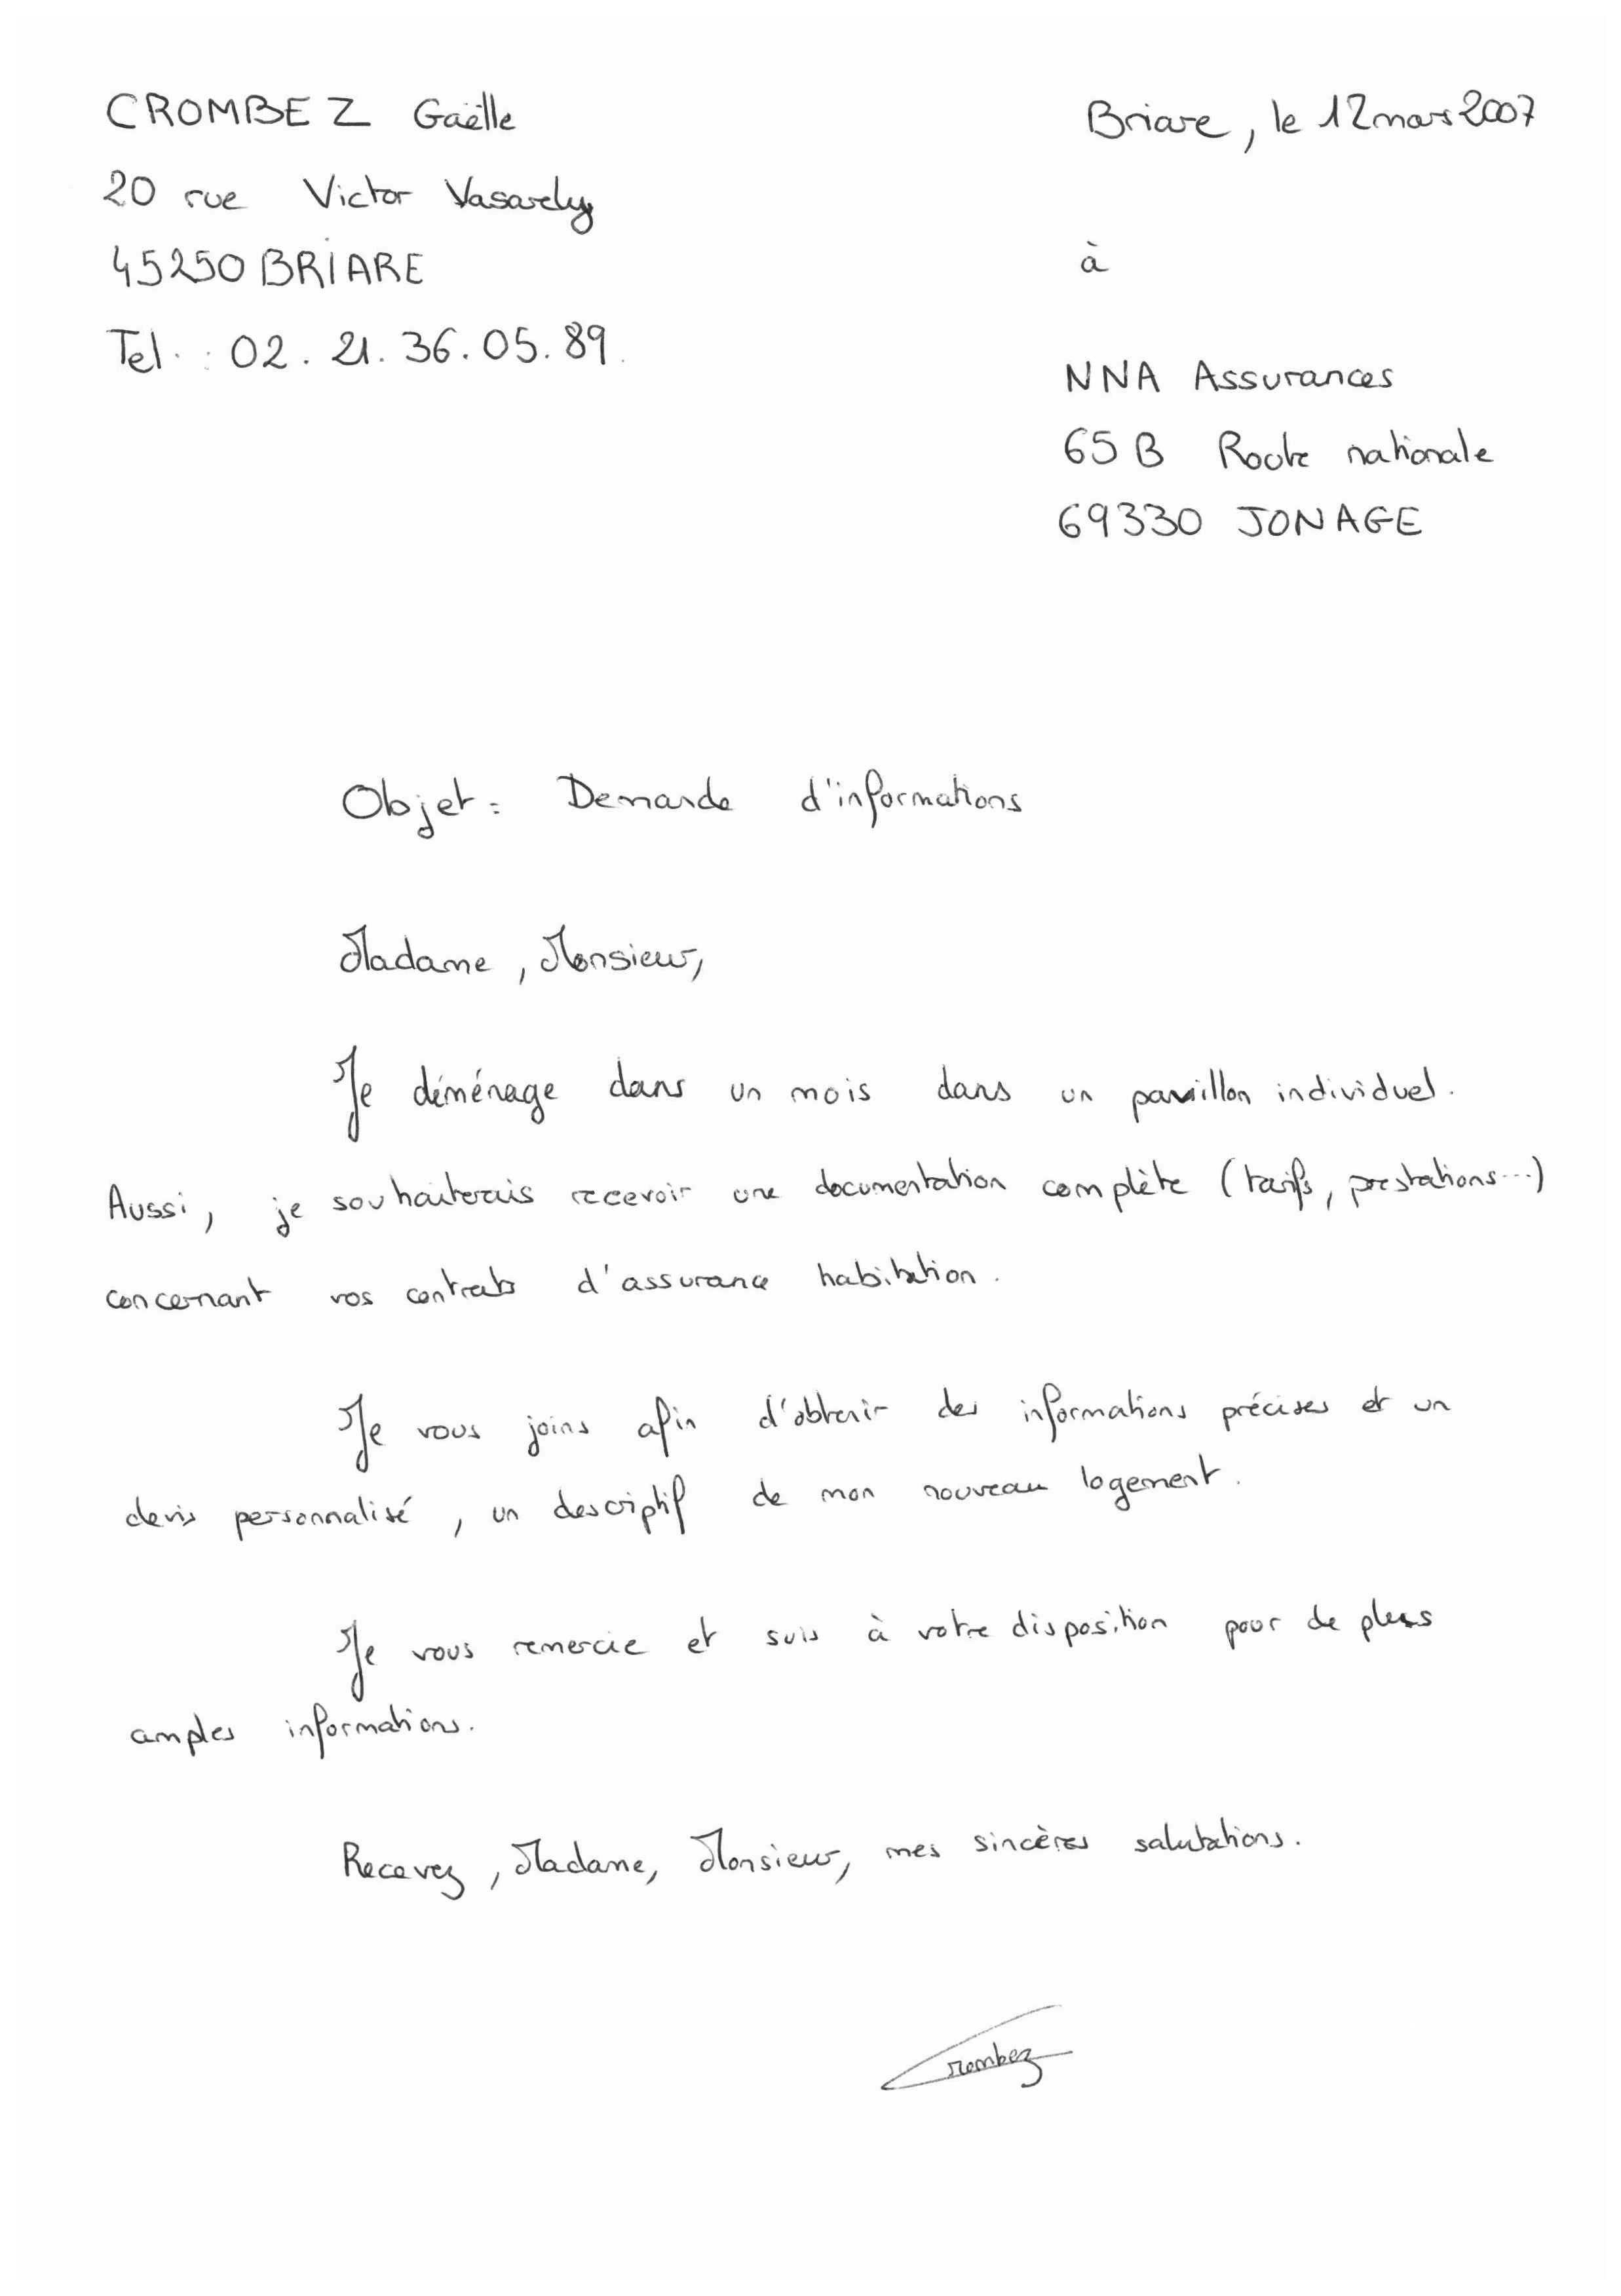 CROMBEZ Gaëlle
20 rue Victor Vasarely
45250 BRIARE
Tel. : 02. 21. 36. 05. 89.
Briare, le 12 mars 2007
à
NNA Assurances
65 B Route nationale
69330 JONAGE
Objet : Demande d'informations
Madame, Monsieur,
Je déménage dans un mois dans un pavillon individuel.
Aussi, je souhaiterais recevoir une documentation complète (tarifs, prestations...)
concernant vos contrats d'assurance habitation.
Je vous joins afin d'obtenir des informations précises et un
devis personnalisé, un descriptif de mon nouveau logement.
Je vous remercie et suis à votre disposition pour de plus
amples informations.
Recevez, Madame, Monsieur, mes sincères salutations.
Crombez